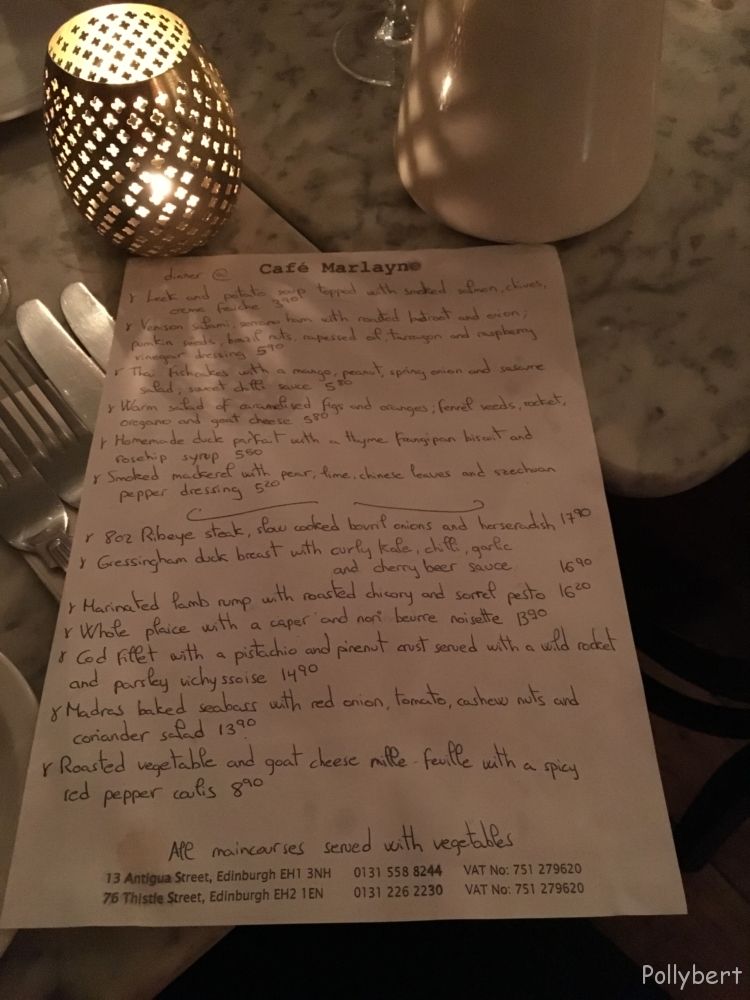 dinner @ Café Marlayne
Leek and potato soup topped with smoked salmon, chives,
creme fraiche 3.90
Venison salami, serrano ham with roasted beetroot and onion;
pumkin seeds, brazil nuts, rapessed oil, tarragon and raspberry
vinegar dressing 5.90
Thai fishcakes with a mango, peanut, spring onion and sesame
salad; sweet chilli sauce 5.80
Warm salad of caramelised figs and oranges; fennel seeds, rocket,
oregano and goat cheese 5.80
Homemade duck parfait with a thyme frangipan biscuit and
rosehip syrup
Smoked mackerel with pear, lime, chinese leaves and szechuan
pepper dressing 5.20
8oz Ribeye steak, slow cooked bovril onions and horseradish 17.90
Gressingham duck breast with curly kale, chilli, garlic
and cherry beer sauce 16.90
Marinated lamb rump with roasted chicory and sorrel pesto 16.20
Whole plaice with a caper and nori beurre noisette 13.90
Cod fillet with a pistachio and pinenut crust served with a wild rocket
and parsley vichyssoise 14.90
Madras baked seabass with red onion, tomato, cashew nuts and
coriander salad 13.90
Roasted vegetable and goat cheese mille-feuille with a spicy
red pepper coulis 8.90
All maincourses served with vegetables
13 Antigua Street, Edinburgh EH1 3NH 0131 558 8244 VAT No: 751 279620
76 Thistle Street, Edinburgh EH2 1EN 0131 226 2230 VAT No: 751 279620
Pollybert